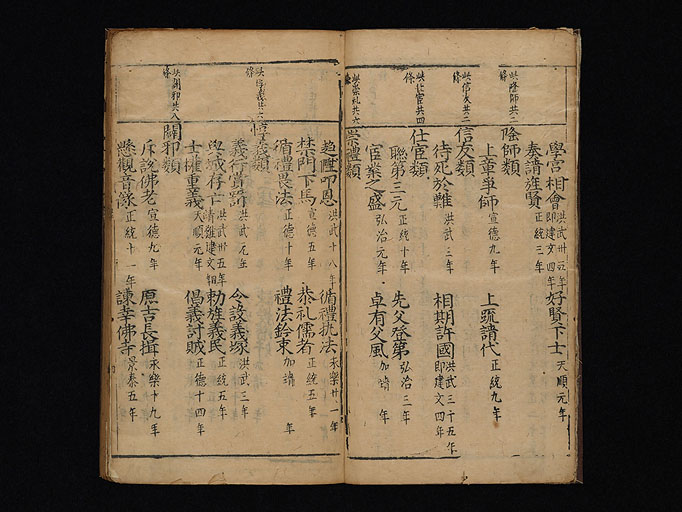 學宮相會 洪武卅五年即建文四年 好賢下士 天順元年
奏請旌賢 正統三年
隆師類 共隆師共二條
上章爭師 宣德九年 上疏請代 正統九年
信友類 共信友共二條
待死於難 洪武三年 相期許國 洪武三十五年即建文四年
仕宦類 共仕宦共四條
聯第三元 正統十年 先父登第 弘治三年
宦業之盛 弘治元年 卓有父風 加靖 年
崇禮類 共崇礼共六條
趋陛叩恩 洪武十八年 循禮執法 永樂廿一年
禁門下馬 宣德五年 恭礼儒者 正統五年
循禮畏法 正德十年 禮法鈐束 加靖 年
義行賞爵 洪武元年 今設義塚 洪武三年
與城存亡 洪武卅五年 勅旌義民 正統五年
士擁重義 天順元年 倡義討賊 正德十四年
闢邪類 共闢邪共八條
斥說佛老 宣德九年 原吉長揖 永樂十九年
縣觀音像 正統十一年 諫幸佛寺 景泰五年